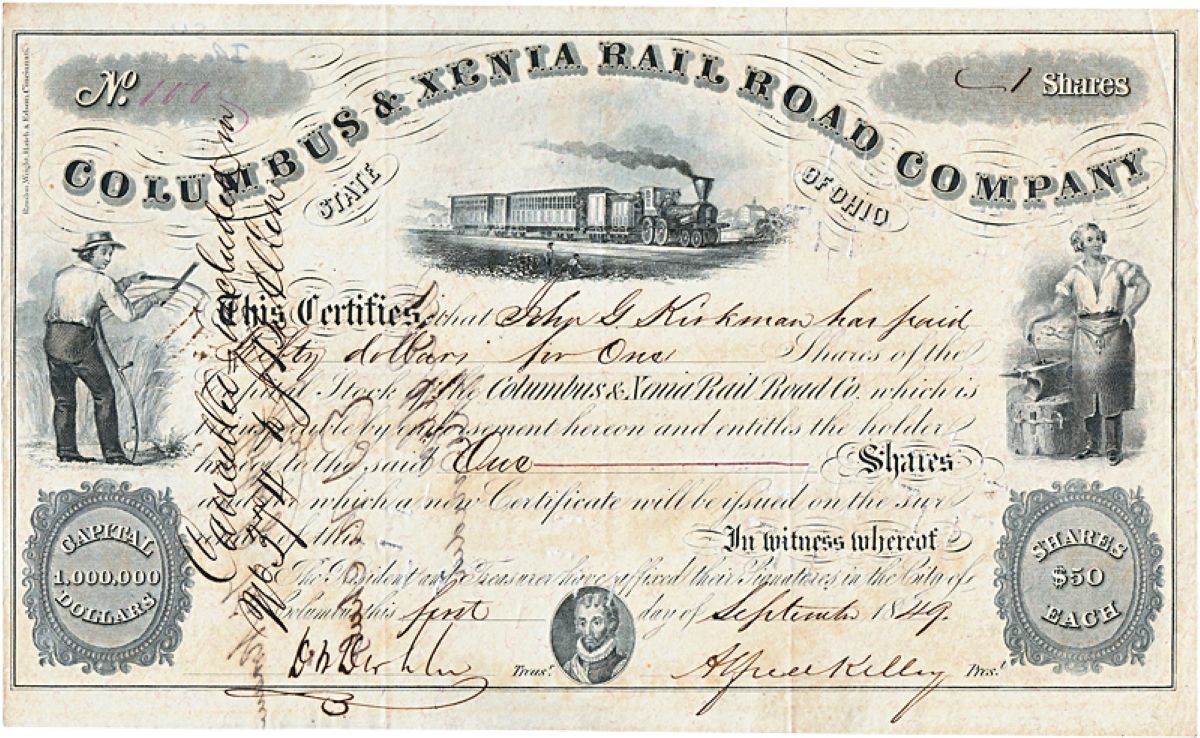 No. 100
1 Shares
COLUMBUS & XENIA RAIL ROAD COMPANY
STATE OF OHIO
This Certifies, that John G. Kirkman has paid
Fifty dollars for One Shares of the
Capital Stock of the Columbus & Xenia Rail Road Co. which is
transferable by endorsement hereon and entitles the holder
hereof to the said One Shares
which a new Certificate will be issued on the sur
of this In witness whereof
The President and Treasurer have affixed their Signatures in the City of
Columbus this first day of September 1849.
Treasr.
Alfred Kelley Prest.
CAPITAL
1,000,000
DOLLARS
SHARES
$50
EACH
Cancelled & included in